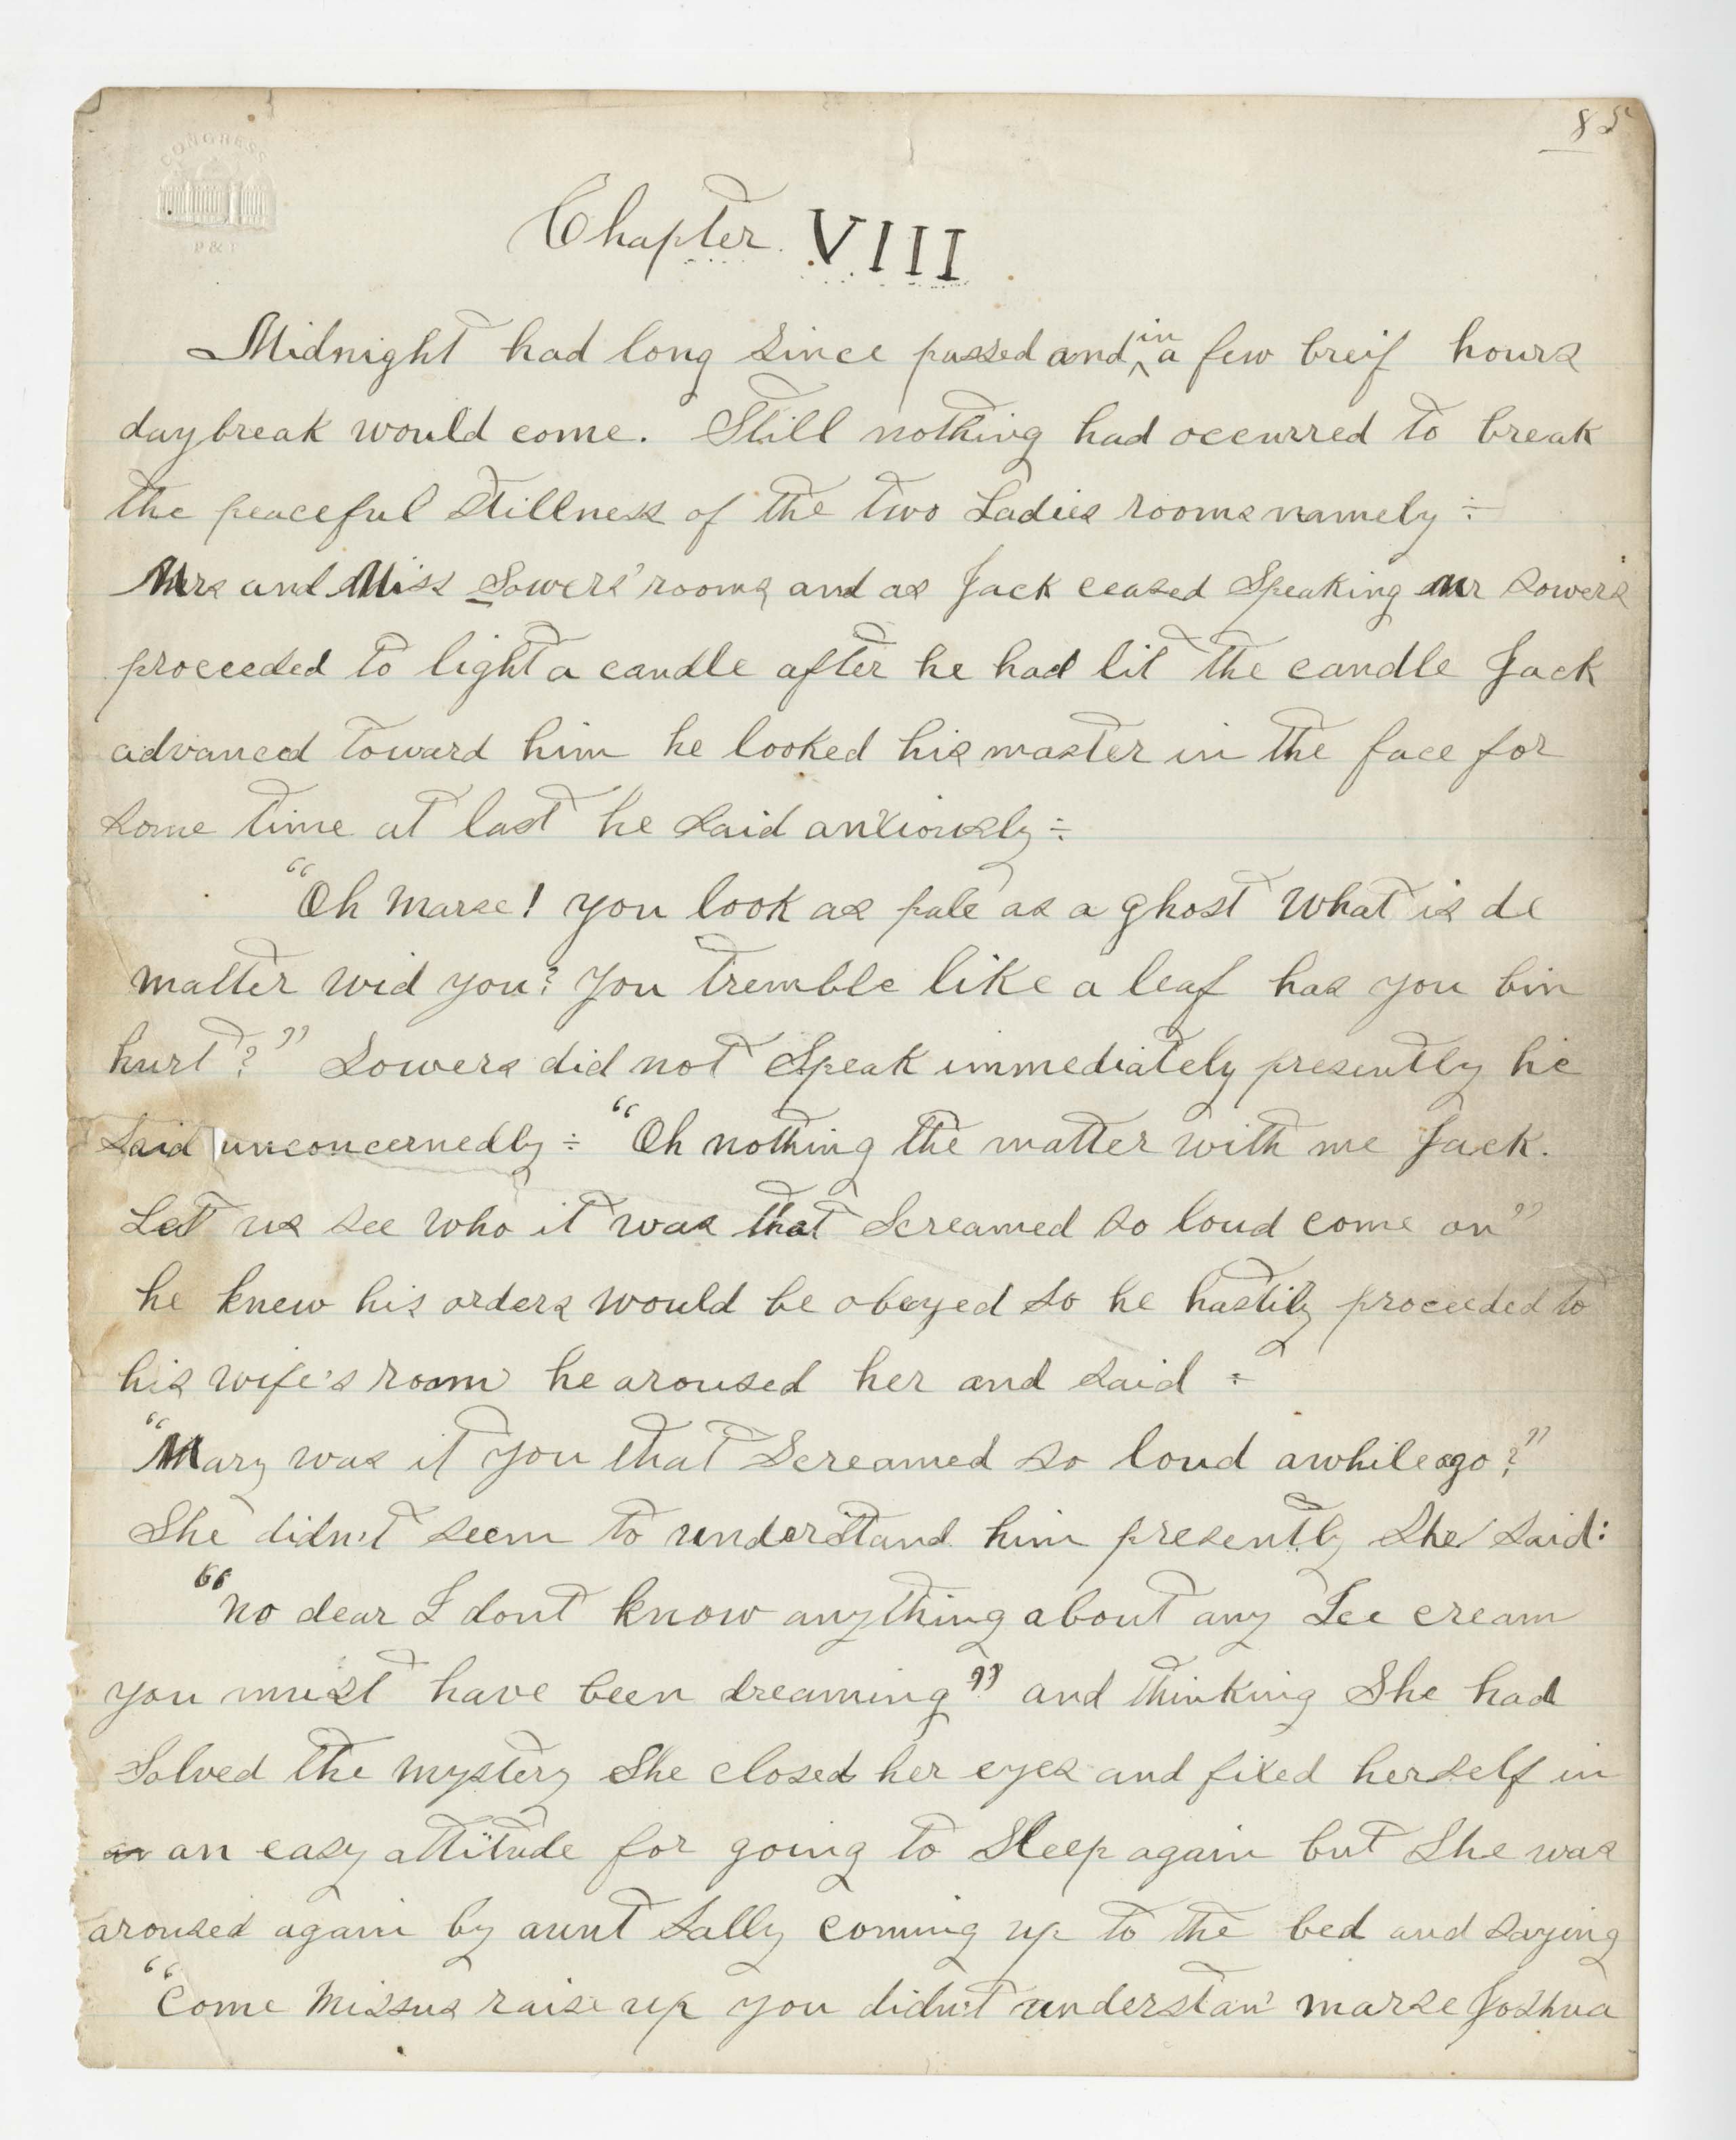 85
CONGRESS
P & P
Chapter VIII
Midnight had long since passed and in a few breif hours
daybreak would come. Still nothing had occurred to break
the peaceful stillness of the two Ladies rooms namely ÷
Mrs and Miss Sowers' rooms, and as Jack ceased Speaking mr Sowers
proceeded to light a candle after he had lit the candle Jack
advanced toward him he looked his master in the face for
some time at last he said anxiously ÷
"Oh Marse! you look as pale as a ghost What is de
matter wid you? You tremble like a leaf has you bin
hurt?" Sowers did not Speak immediately presently he
said unconcernedly ÷ "Oh nothing the matter with me Jack.
Let us see who it was that Screamed so loud come on"
he knew his orders would be obeyed so he hastily proceeded to
his wife's room he aroused her and said ÷
"Mary was it you that Screamed so loud awhile ago?"
She didn't seem to understand him presently She said:
"No dear I dont know anything about any Ice cream
you must have been dreaming" and thinking She had
Solved the mystery She closed her eyes and fixed herself in
an easy attitude for going to Sleep again but She was
aroused again by aunt Sally coming up to the bed and saying
"Come Missus raise up you didn't understan' marse Joshua